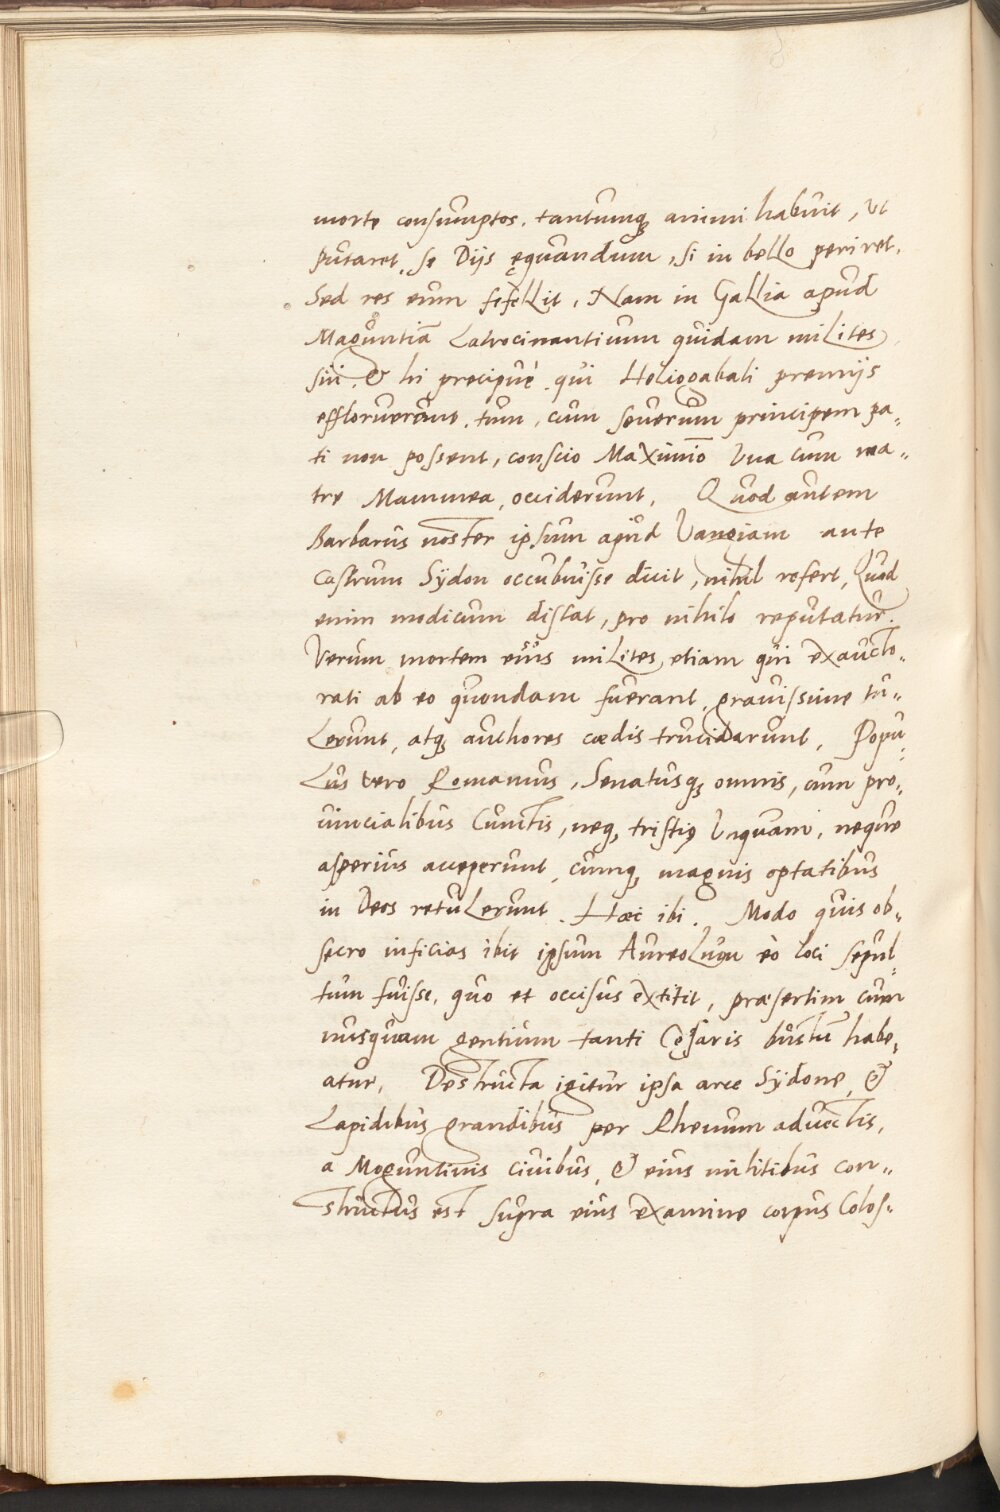 morte consumptos. tantumq; animi habuit, ut
putaret, se Dijs ęquandum, si in bello periret.
Sed res eum fefellit, Nam in Gallia apud
Maguntiā Latrocinantium quidam milites
sui. & hi precipuè. qui Heliogabali premijs
effloruerant. tum, cum seuerum principem pa„
ti non possent, conscio Maximīo Vna cum ma„
tre Mammea, occiderunt. Quod autem
Barbarus noster ipsum apud Vangiam ante
Castrum Sÿdon occubuisse dicit, nihil refert, Quod
enim modicum distat, pro nihilo reputatur.
Verum mortem eius milites, etiam qui exaucto„
rati ab eo quondam fuerant, grauissime tu„
Lerunt, atq; authores cædis trucidarunt. Popu„
Lus vero Romanus, Senatusq; omnis, cum pro„
uincialibus Cunctis, neq; tristię Vnquam, neque
asperius acceperunt, cumq; magnis optatibus
in Deos retulerunt. Hæc ibi. Modo quis ob„
secro inficias ibit ipsum Aureolum eò loci sepul„
tum fuisse, quo et occisus extitit, præsertim cum
nusquam gentium tanti Cęsaris bustū habe„
atur. Destructa igitur ipsa arce Sÿdone, &
Lapidibus grandibus per Rhenum aduectis,
a Moguntinis ciuibus, & eius militibus con„
structus est supra eius examine corpus Colos„